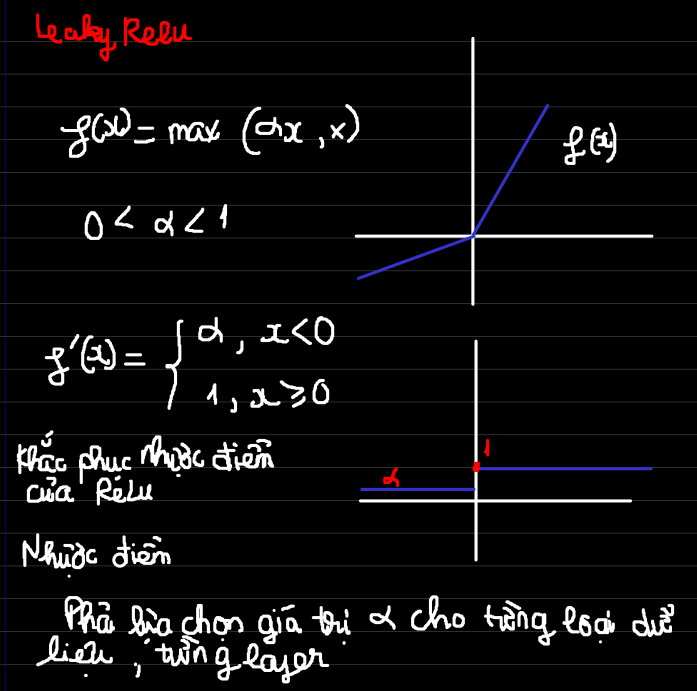 Leaky Relu
f(x) = max (αx, x)
f(x)
0 < α < 1
f'(x) = { α, x<0
1, x ≥ 0
1
α
Khắc phục nhược điểm
của Relu
Nhược điểm
Phải lựa chọn giá trị α cho từng loại dữ
liệu, từng layer